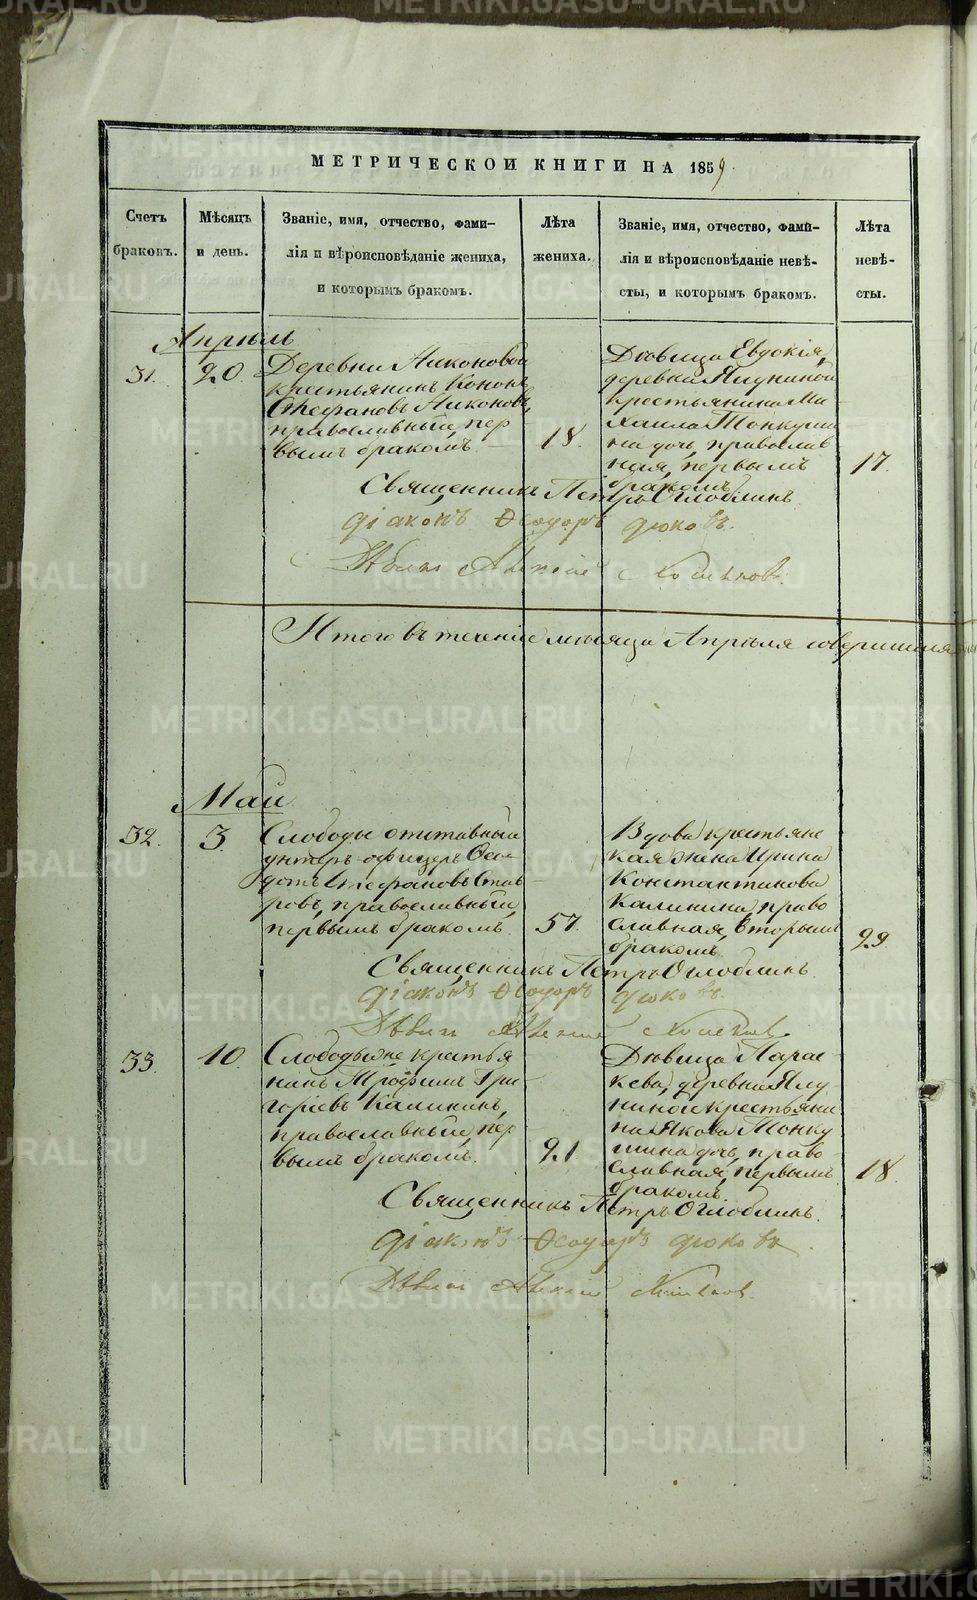 МЕТРИЧЕСКОЙ КНИГИ НА 1859
Счетъ браковъ.
Мѣсяцъ и день.
Званіе, имя, отчество, фами-
лія и вѣроисповѣданіе жениха,
и которымъ бракомъ.
Лѣта жениха.
Званіе, имя, отчество, фами-
лія и вѣроисповѣданіе невѣ-
сты, и которымъ бракомъ.
Лѣта невѣ-
сты.
Апрѣль
31.
20.
Деревни Никоновой
крестьянинъ Кононъ
Стефановъ Никоновъ,
православный, пер
вымъ бракомъ.
18.
Дѣвица Евдокія,
деревни
крестьянина Ми
хаила
на дочь, православ
ная, первымъ
бракомъ.
17.
Священникъ Петръ Оглоблинъ
Діаконъ Ѳеодоръ
Итого въ теченіе мѣсяца Апрѣля
Май
32.
3.
Слободы отставный
унтеръ-офицеръ Ѳео
дотъ Стефановъ
ровъ, православный,
первымъ бракомъ.
57.
Вдова крестьянс
кая жена Ирина
Константинова
Калинина, право
славная, вторымъ
бракомъ.
29.
Священникъ Петръ Оглоблинъ.
Діаконъ Ѳеодоръ
33.
10.
Слободы же крестья
нинъ Трофимъ Гри
горіевъ Калининъ,
православный, пер
вымъ бракомъ.
21.
Дѣвица Парас
кева, деревни
крестьяни
на Якова
шина дочь, право
славная, первымъ
бракомъ.
18.
Священникъ Петръ Оглоблинъ.
Діаконъ Ѳеодоръ
METRIKI.GASO-URAL.RU